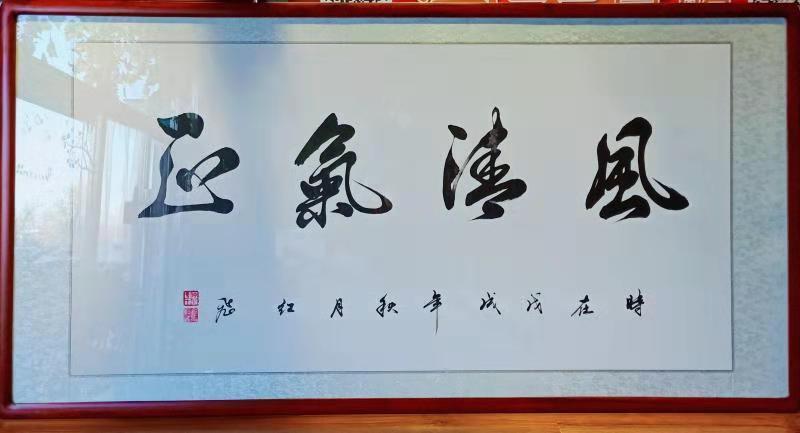 風清氣正
時在戊戌年秋月红